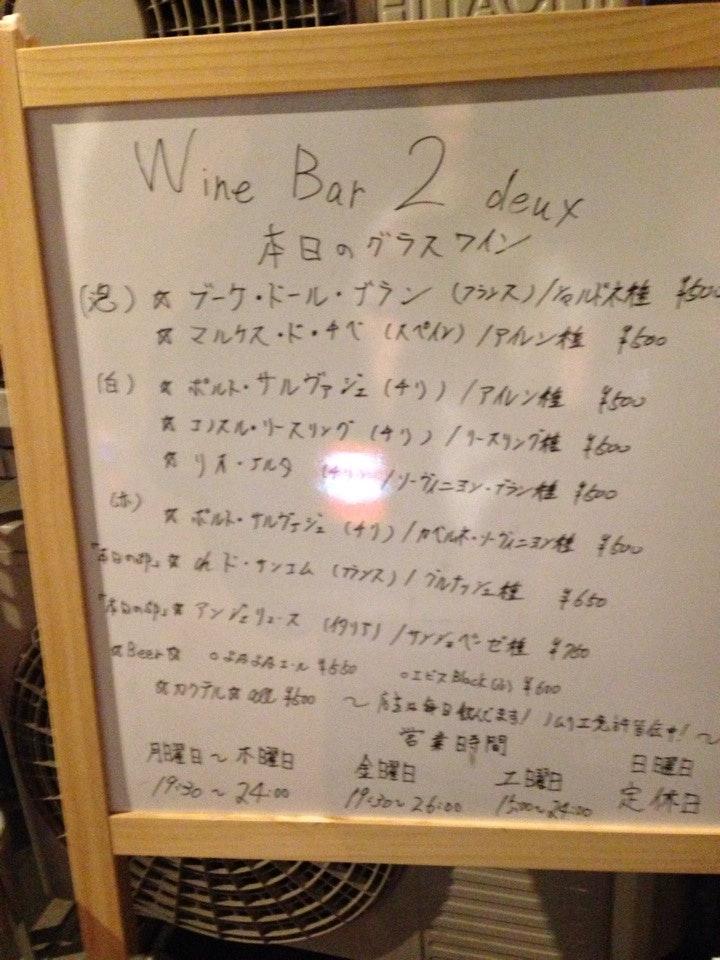 HITACHI
Wine Bar 2 deux
本日のグラスワイン
(泡) ☆ ブーケ・ドール・ブラン (フランス)/シャルドネ種 ¥500
☆ マルケス・ド・チベ (スペイン)/アイレン種 ¥500
(白) ☆ ポルト・サルヴァジェ (チリ)/アイレン種 ¥500
☆ コノスル・リースリング (チリ)/リースリング種 ¥600
☆ リオ・アルタ /ソーヴィニヨン・ブラン種 ¥600
(赤)
☆ ポルト・サルヴァジェ (チリ)/カベルネ・ソーヴィニヨン種 ¥600
☆ ch ド・サンコム (フランス)/グルナッシュ種 ¥650
☆ アンジェリュース (イタリア)/サンジョベーゼ種 ¥750
☆Beer☆ ○よなよなエール ¥550 ○エビスBlack(小) ¥600
☆カクテル☆ all ¥600 ~店主は毎日飲んでます!
営業時間
月曜日~木曜日 金曜日 土曜日 日曜日
19:30~24:00 19:30~26:00 15:00~24:00 定休日